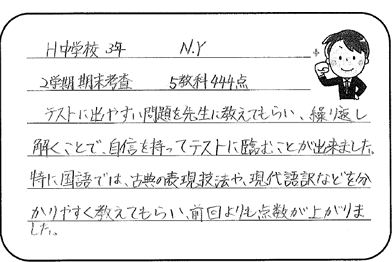 H中学校 3年 N.Y
2学期期末考査 5教科444点
テストに出やすい問題を先生に教えてもらい、繰り返し
解くことで、自信を持ってテストに臨むことが出来ました。
特に国語では、古典の表現技法や、現代語訳などを分
かりやすく教えてもらい、前回よりも点数が上がりま
した。